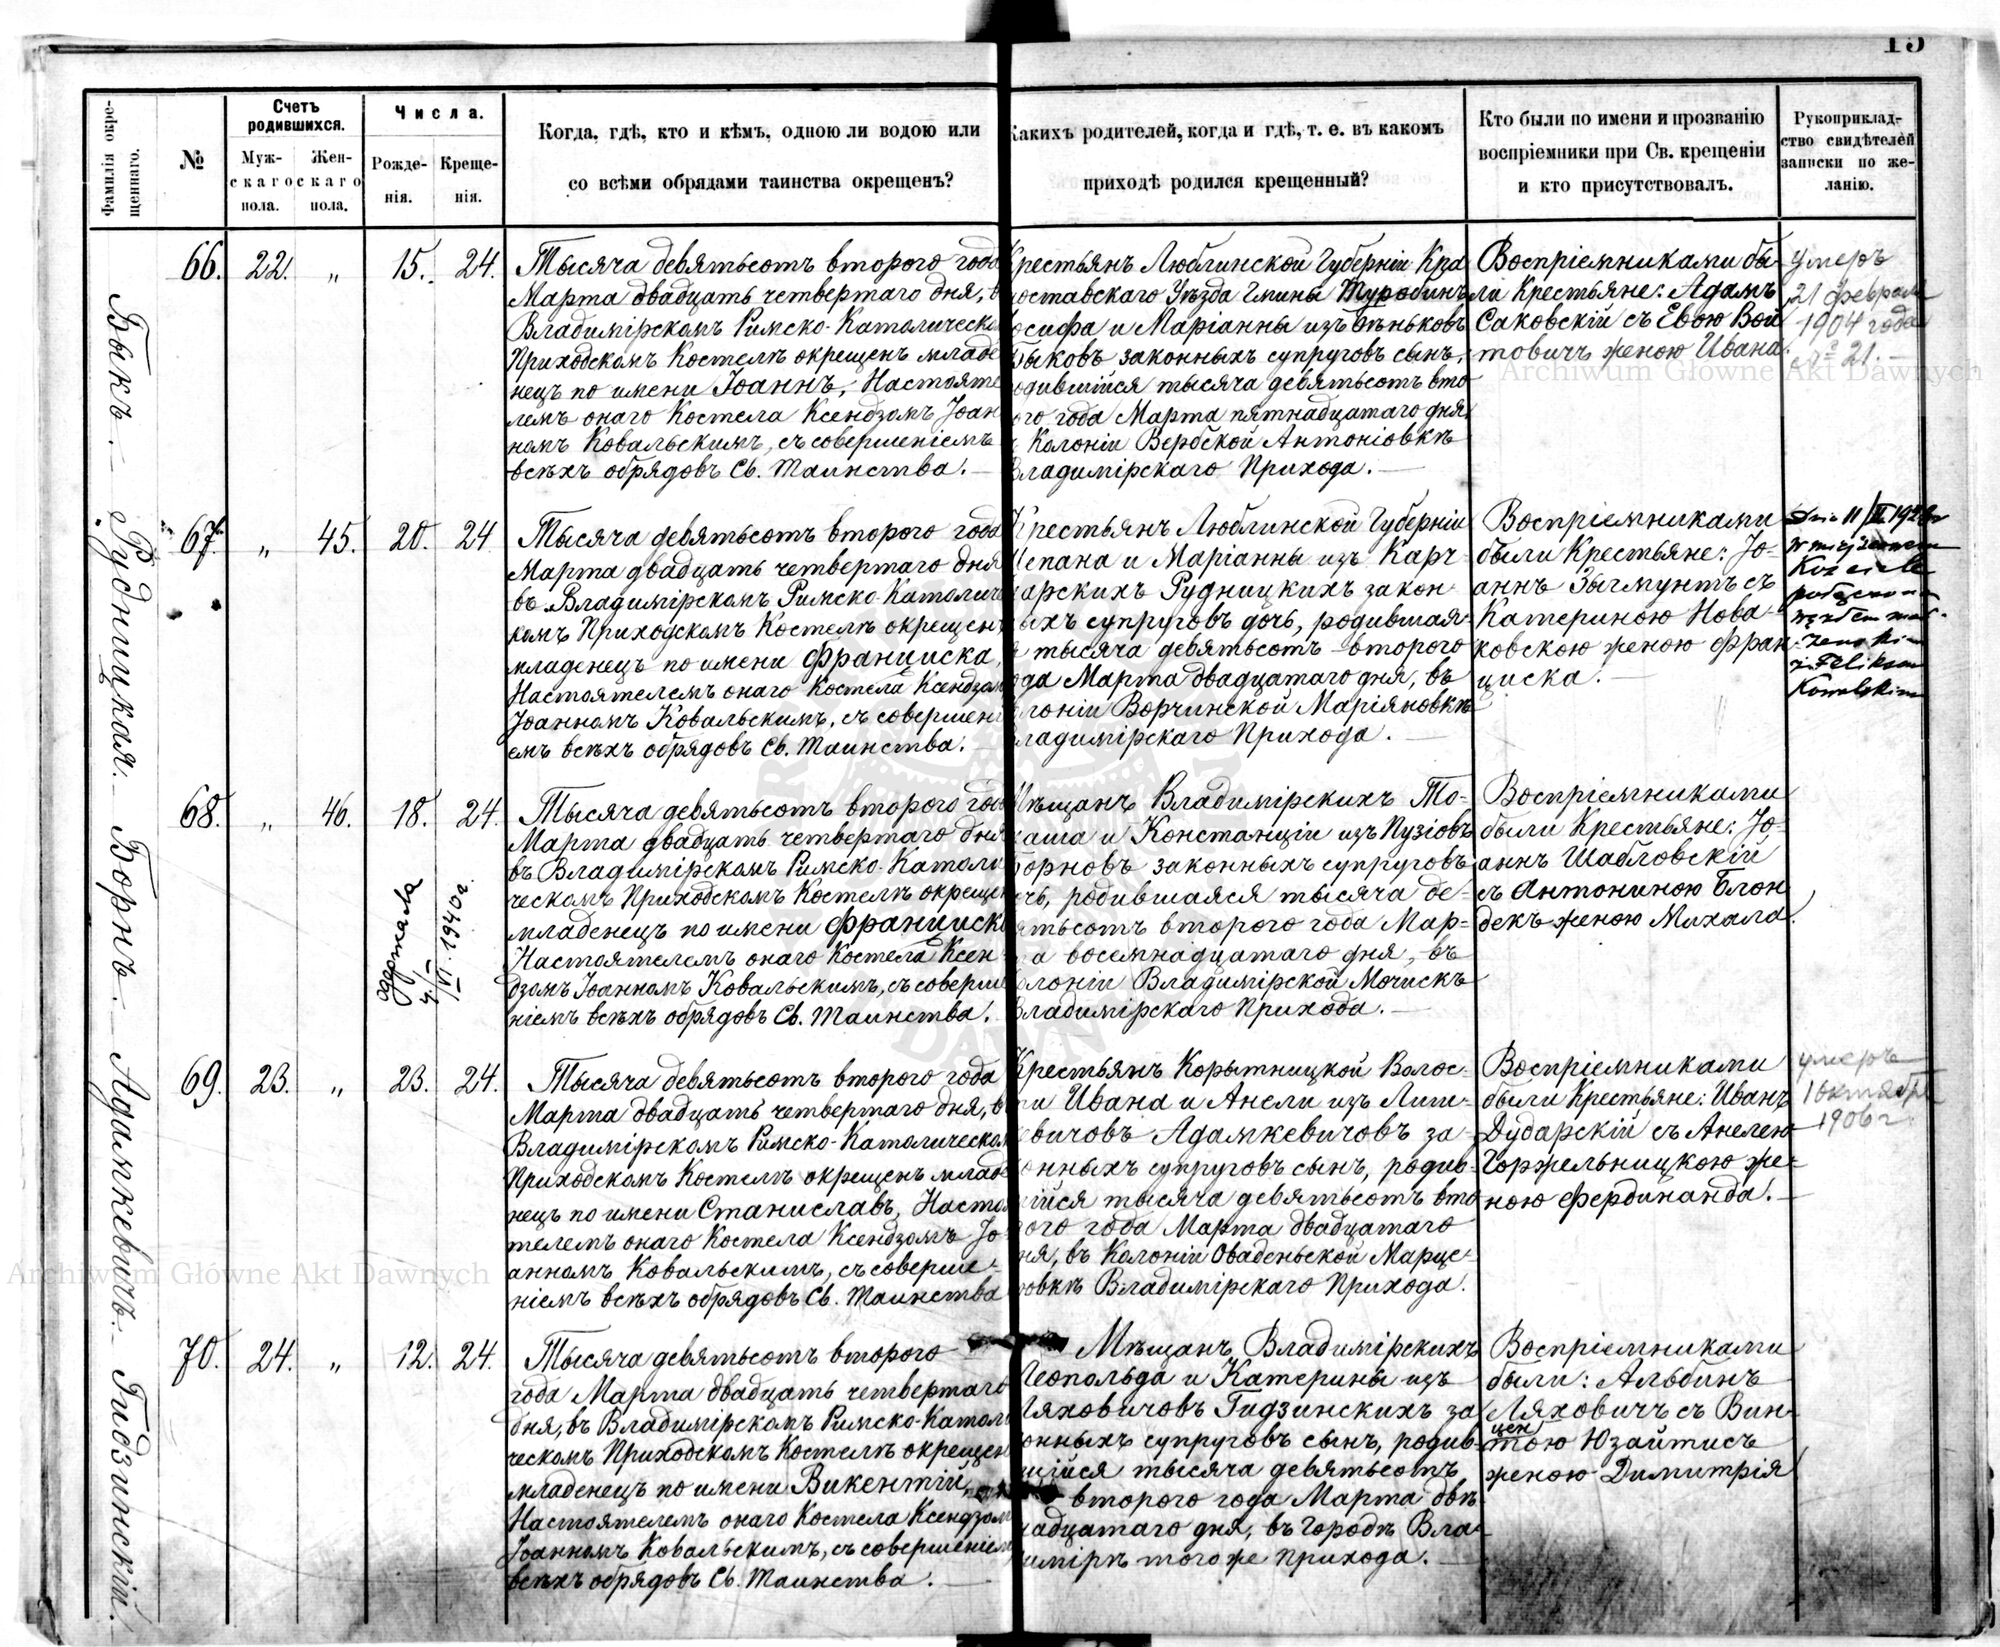 15
Фамилія окре-
щеннаго.
№
Счетъ
родившихся.
Муж-
скаго
пола.
Жен-
скаго
пола.
Числа.
Рожде-
нія.
Креще-
нія.
Когда, гдѣ, кто и кѣмъ, одною ли водою или
со всѣми обрядами таинства окрещенъ?
Какихъ родителей, когда и гдѣ, т. е. въ какомъ
приходѣ родился крещенный?
Кто были по имени и прозванію
воспріемники при Св. крещеніи
и кто присутствовалъ.
Рукоприклад-
ство свидѣтелей
записки по же-
ланію.
Быкъ.
66. 22. „ 15. 24.
Тысяча девятьсотъ второго года
Марта двадцать четвертаго дня, в
Владимірскомъ Римско-Католическо
Приходскомъ Костелѣ окрещенъ младе
нецъ по имени Іоаннъ, Настояте
лемъ онаго Костела Ксендзомъ Іоан
номъ Ковальскимъ, съ совершеніемъ
всѣхъ обрядовъ Св. Таинства. —
Крестьянъ Люблинской Губерніи Кра
ноставскаго Уѣзда Гмины Туробинъ
осифа и Маріанны изъ Веньковъ
Быковъ законныхъ супруговъ сынъ,
одившійся тысяча девятьсотъ вто
ого года Марта пятнадцатаго дня
Колоніи Вербской Антоніовкѣ
Владимірскаго Прихода. —
Воспріемниками бы-
ли Крестьяне: Адамъ
Саковскій съ Евою Вой
товичъ женою Ивана.
умеръ
21 февраля
1904 года
№ 21. —
Рудницкая.
67. „ 45. 20. 24
Тысяча девятьсотъ второго года
Марта двадцать четвертаго дня
въ Владимірскомъ Римско-Католич
комъ Приходскомъ Костелѣ окрещен
младенецъ по имени Франциска,
Настоятелемъ онаго Костела Ксендзом
Іоанномъ Ковальскимъ, съ совершені
емъ всѣхъ обрядовъ Св. Таинства. —
Крестьянъ Люблинской Губерніи
Щепана и Маріанны изъ Карч
марскихъ Рудницкихъ закон-
ыхъ супруговъ дочь, родившая-
тысяча девятьсотъ второго
ода Марта двадцатаго дня, въ
лоніи Ворчинской Маріяновкѣ
ладимірскаго Прихода. —
Воспріемниками
были Крестьяне: Іо-
аннъ Зыгмунтъ съ
Катериною Нова-
ковскою женою Фран-
циска. —
Dnia 11/II 1926 r
w miejscowem
Kościele
z Feliksem
Kowalskim
Борнъ.
68. „ 46. 18. 24.
одержала
4/VI 1940 г.
Тысяча девятьсотъ второго год
Марта двадцать четвертаго дня
въ Владимірскомъ Римско-Католи
ческомъ Приходскомъ Костелѣ окрещен
младенецъ по имени Франциск
Настоятелемъ онаго Костела Ксен-
дзомъ Іоанномъ Ковальскимъ, съ соверше
ніемъ всѣхъ обрядовъ Св. Таинства.
Мѣщанъ Владимірскихъ То-
маша и Констанціи изъ Пузіовъ
Борновъ законныхъ супруговъ
очь, родившаяся тысяча де-
ятьсотъ второго года Мар-
а восемнадцатаго дня, въ
олоніи Владимірской Мочискѣ
Владимірскаго Прихода. —
Воспріемниками
были Крестьяне: Іо-
аннъ Шабловскій
съ Антониною Блон
декъ женою Михала.
Адамкевичъ.
69. 23. „ 23. 24.
Тысяча девятьсотъ второго года
Марта двадцать четвертаго дня, в
Владимірскомъ Римско-Католическом
Приходскомъ Костелѣ окрещенъ младе
нецъ по имени Станиславъ, Настоя
телемъ онаго Костела Ксендзомъ Іо-
анномъ Ковальскимъ, съ соверше-
ніемъ всѣхъ обрядовъ Св. Таинства
Крестьянъ Корытницкой Волос-
ти Ивана и Анели изъ Лит-
евичовъ Адамкевичовъ за-
онныхъ супруговъ сынъ, родив-
шійся тысяча девятьсотъ вто
рого года Марта двадцатаго
ня, въ Колоніи Оваденьской Марце-
новкѣ Владимірскаго Прихода.
Воспріемниками
были Крестьяне: Иванъ
Дударскій съ Анелею
Горжельницкою же-
ною Фердинанда. —
умеръ
1 октября
1906 г.
Гидзинскій.
70. 24. „ 12. 24.
Тысяча девятьсотъ второго
года Марта двадцать четвертаго
дня, въ Владимірскомъ Римско-Катол
ческомъ Приходскомъ Костелѣ окрещен
младенецъ по имени Викентій,
Настоятелемъ онаго Костела Ксендзом
Іоанномъ Ковальскимъ, съ совершеніем
всѣхъ обрядовъ Св. Таинства. —
Мѣщанъ Владимірскихъ
Леопольда и Катерины изъ
Ляховичовъ Гидзинскихъ за
онныхъ супруговъ сынъ, родив
шійся тысяча девятьсотъ
второго года Марта двѣ-
надцатаго дня, въ Городѣ Вла-
димірѣ того же Прихода. —
Воспріемниками
были: Альбинъ
Ляховичъ съ Вин-
цен
тою Юзайтисъ
женою Димитрія
Archiwum Główne Akt Dawnych
Archiwum Główne Akt Dawnych